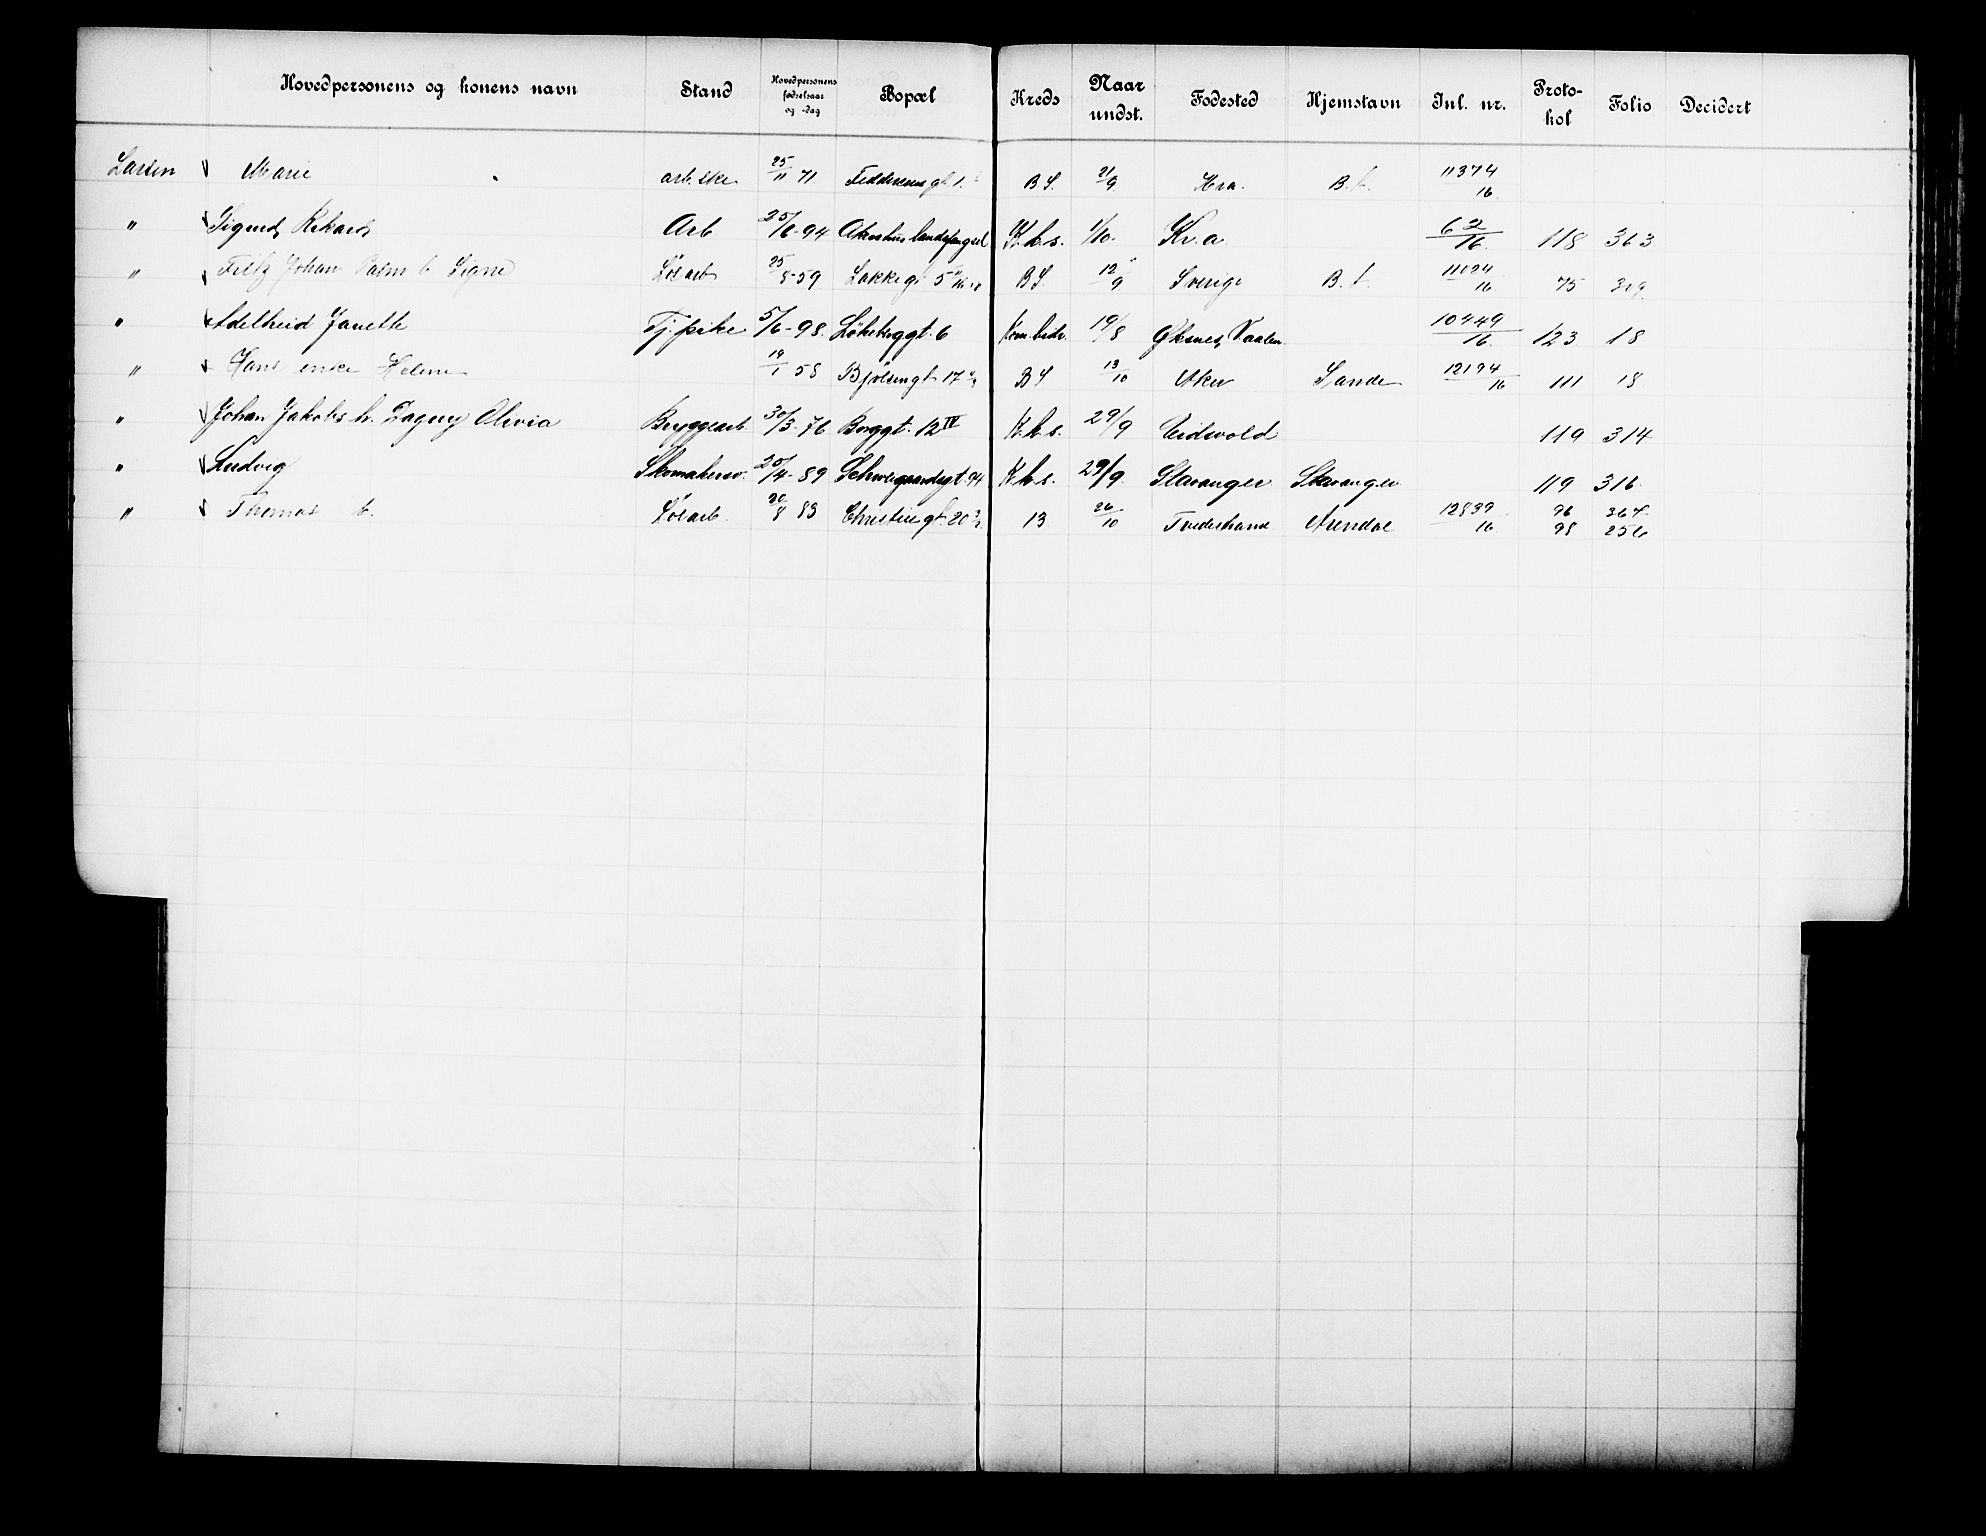 Hovedpersonens og konens navn Stand Hovedpersonens fødselsaar og -dag Bopæl Kreds Naar undst. Fødested Hjemstavn Inl. nr. Protokol Folio Decidert
Larsen Marie arb.ske 25/11 71 gt. 1. B S. 21/9 Kra. B. f. 11374/16
" Sigurd Rikard Arb 25/6-94 Akershus landsfængsel K.k.s. 1/10. Kr.a 62/16. 118 363
" Fritz Johan Palm h. Signe Løsarb 25/5-59 Lakkegt 5 B S. 12/9 Sverige B. f. 11124/16 75 319.
" Adelheid Janette Tj.pike 5/6-98. Løkkebggt. 6 Kom.bidr. 19/8 Øksnes, Vaalen 10449/16. 123 18
" Hans enke Helene 19/1 58 Bjølsengt 17 B S 13/10 Aker Sande 12194/16 111 18.
" Johan Jakobs h. Dagny Olivia Bryggearb. 30/3-76 Borggt. 12 IV K.k.s. 29/9 Eidsvold 119 314
" Ludvig Skomakersv. 25/4-89 Schweigaardsgt. 94 K.k.s. 29/9. Stavanger Stavanger 119 316
" Thomas h. Løsarb. 30/8 83 Christiesgt. 20 13 26/10 Tvedestrand Arendal 12839/16. 96 364
98 256